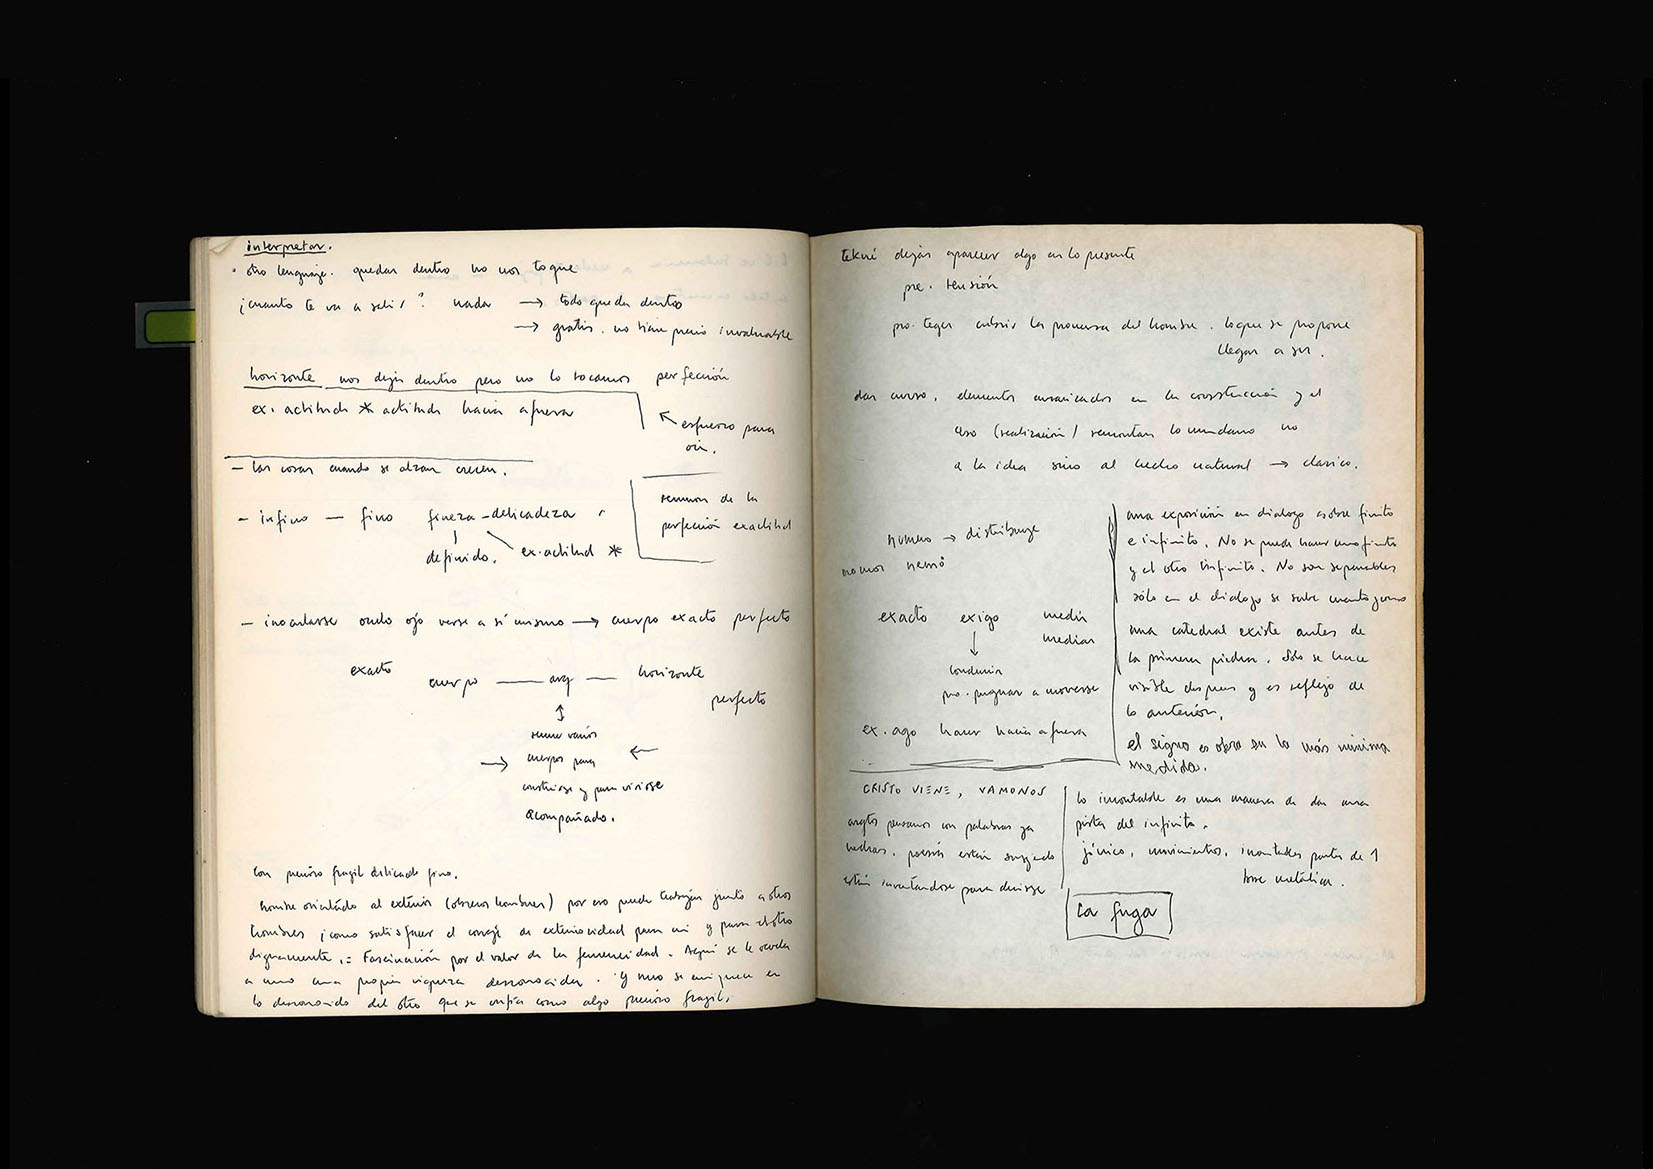 interpretar.
otro lenguaje. quedar dentro no nos toque
¿cuanto te va a salir? nada → todo queda dentro
→ gratis. no tiene precio invaluable
horizonte nos deja dentro pero no lo tocamos perfección
ex. actitud * actitud hacia afuera
← esfuerzo para
oir.
- las cosas cuando se alzan crecen.
- infino — fino fineza - delicadeza
definido. ex.actitud *
resumen de la
perfección exactitud
- inocularse ojo verse a sí mismo → cuerpo exacto perfecto
exacto
cuerpo — arq — horizonte
perfecto
reune varios
→ cuerpos para ←
construirse y para vivirse
acompañado.
con preciso fragil delicado fino.
hombre orientado al exterior (obreros hombres) por eso puede trabajar junto a otros
hombres ¿como satisfacer el coraje de exterioridad para mi y para el otro
dignamente. = Fascinación por el valor de la femeneidad. Aquí se le revela
a uno una propia riqueza desconocida. Y uno se enriquece en
lo desconocido del otro que se confia como algo preciso fragil,
tekné dejar aparecer algo en lo presente
pre. tensión
pro. teger cubrir la promesa del hombre. lo que se propone
llegar a ser.
dar curso, elementos en la construcción y el
uso (realización) remontan lo mundano no
a la idea sino al hecho natural → clasico.
numero → distribuye
nomos nemó
exacto exigo medir
mediar
↓
conducir
pro. pugnar a moverse
ex. ago hacer hacia afuera
una exposición en dialogo sobre finito
e infinito. No se puede hacer uno finito
y el otro infinito. No son separables
sólo en el dialogo se sabe cuanto
una catedral existe antes de
la primera piedra. Solo se hace
visible despues y es reflejo de
lo anterior.
el signo es obra en la más minima
medida.
CRISTO VIENE, VAMONOS
arqtos pensamos con palabras ya
hechas, poesía están surgiendo
están inventandose para decirse
lo incontable es una manera de dar una
pista del infinito.
movimientos, incontables partes de 1
base metálica.
la fuga